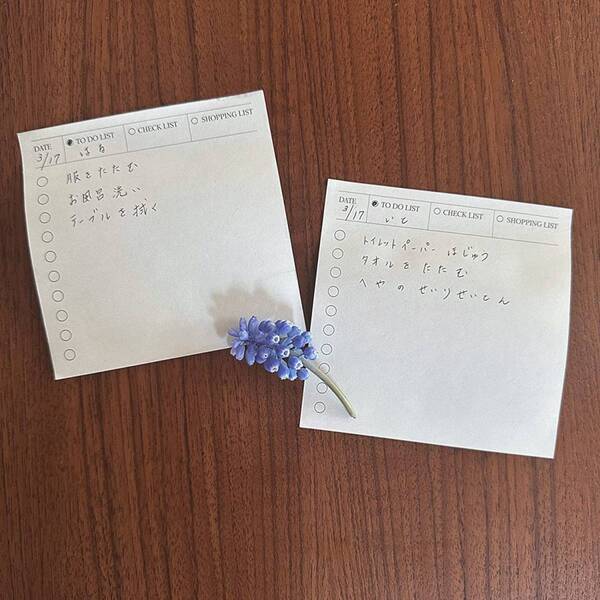 DATE TO DO LIST CHECK LIST SHOPPING LIST
3/17 はる
服をたたむ
お風呂洗い
テーブルを拭く
DATE TO DO LIST CHECK LIST SHOPPING LIST
3/17 いと
トイレットペーパー ほじゅう
タオルを たたむ
へやの せいりせいとん